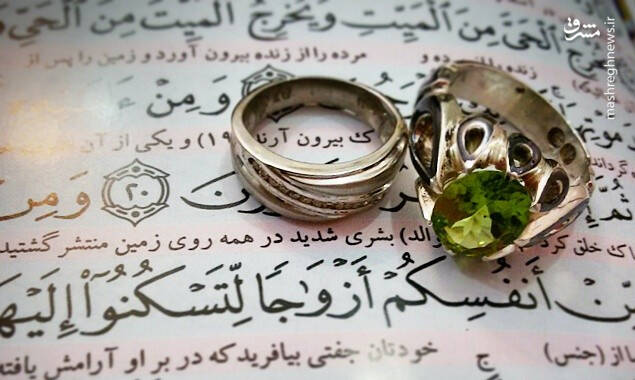 الْحَيَّ مِنَ الْمَيِّتِ وَيُخْرِجُ الْمَيِّتَ مِنَ الْحَيِّ
مشرق
mashreghnews.ir
زنده را از مرده را از زنده بیرون آورد و زمین را پس از
مَوْتِهَا وَمِنْ
بیرون آرند ۱۹) و یکی از آن
ثُمَّ ۲۰ وَمِنْ
خلق کرد بشری شدید در همه روی زمین منتشر گشتید
مِّنْ أَنفُسِكُمْ أَزْوَٰجًا لِّتَسْكُنُوٓا۟ إِلَيْهَا
از (جنس) خودتان جفتی بیافرید که در بر او آرامش یافته